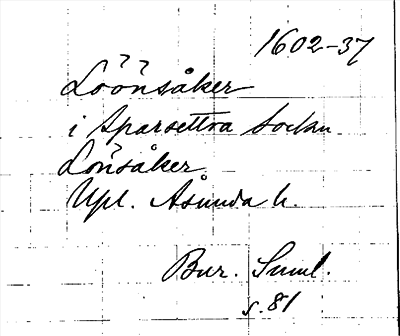 1602-37
Löönsåker
i Sparsettra Sockn.
Lönsåker
Upl. Åsunda h.
Bur. Suml.
s. 81